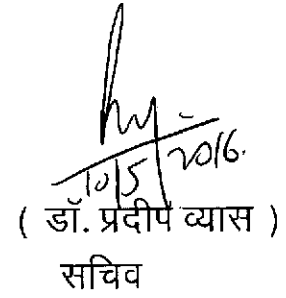 10/5/2016.
( डॉ. प्रदीप व्यास )
सचिव